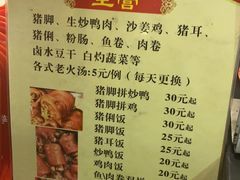 主营
猪脚、生炒鸭肉、沙姜鸡、猪耳、
猪俐、粉肠、鱼卷、肉卷
卤水豆干 白灼蔬菜等
各式老火汤:5元/例（每天更换）
猪脚拼炒鸭 30元起
猪脚拼鸡 30元起
猪俐饭 30元起
猪脚饭 25元起
猪耳饭 25元起
鸭肉饭 20元起
鸡肉饭 20元起